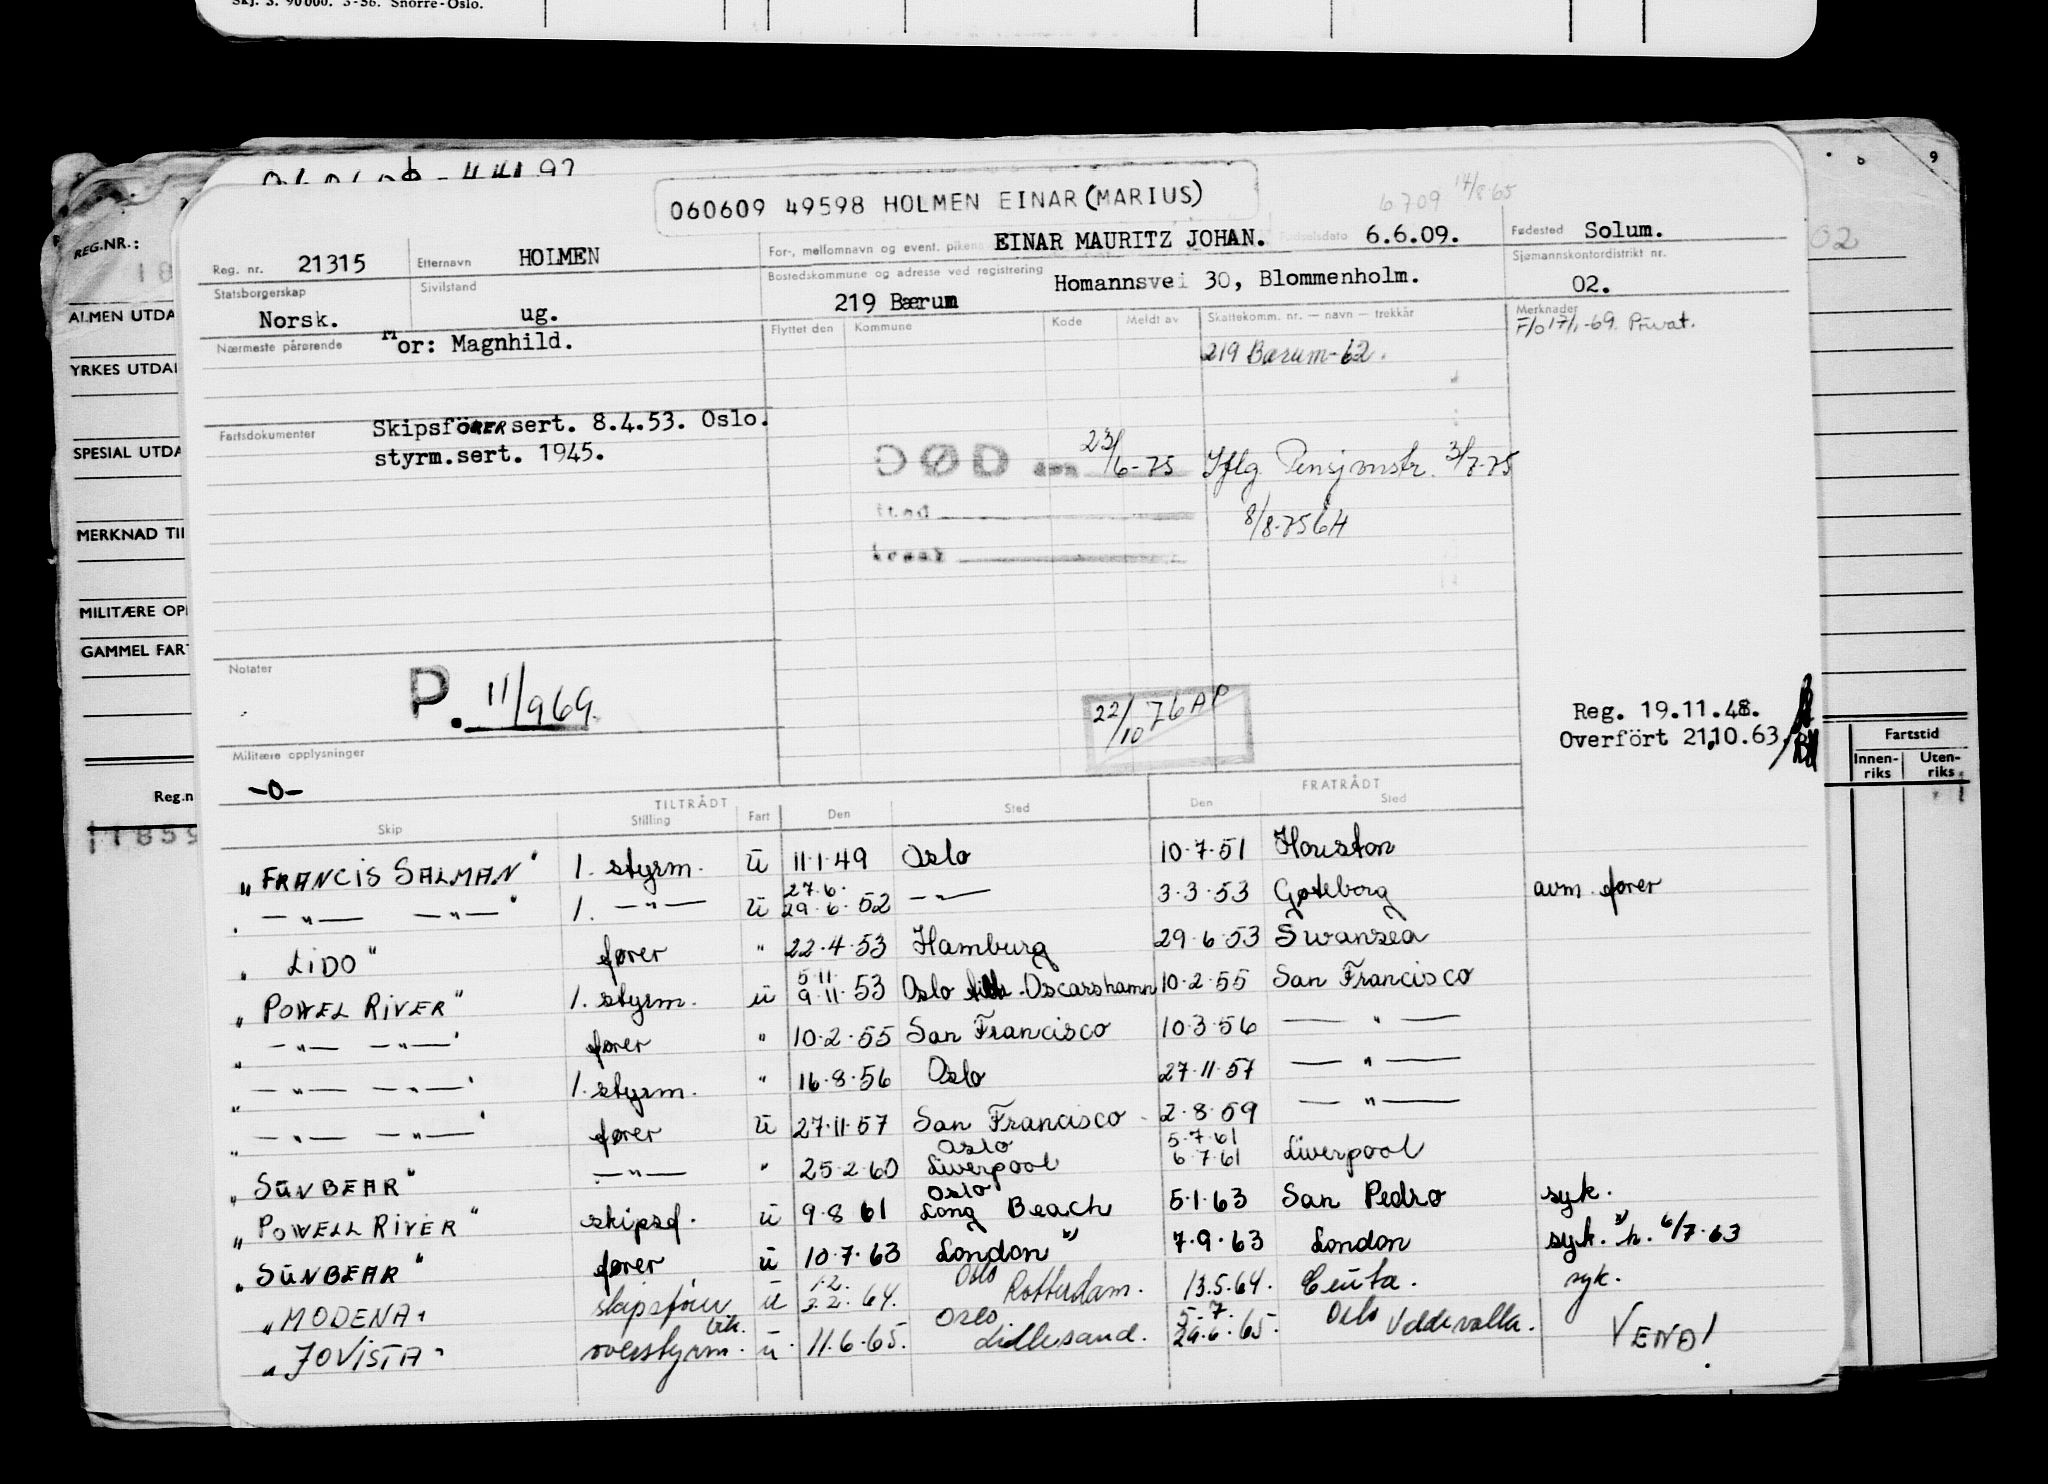 Skj. S. 90000. 3-56. Snorre-Oslo.
060609 49598 HOLMEN EINAR (MARIUS)
6709 14/8-65
REG.NR.:
Reg. nr. 21315 Etternavn HOLMEN For-, mellomnavn og event. pikena EINAR MAURITZ JOHAN. Fødselsdato 6.6.09. Fødested Solum.
Statsborgerskap Norsk. Sivilstand ug. Bostedskommune og adresse ved registrering Homannsvei 30, Blommenholm. Sjømannskontordistrikt nr.
219 Bærum 02.
Nærmeste pårørende Mor: Magnhild. Flyttet den Kommune Kode Meldt av Skattekomm. nr. — navn — trekkår Merknader
F/o 17/1-69. Privat.
219 Bærum-62.
ALMEN UTDA
YRKES UTDA
SPESIAL UTDA
MERKNAD TIL
MILITÆRE OP
GAMMEL FAR
Fartsdokumenter Skipsförer sert. 8.4.53. Oslo.
styrm.sert. 1945.
DØD den 23/6-75 Iflg Pensjonstr. 3/7-75
8/8-75 GH
Notater P. 11/969.
22/10 76 AP
Reg. 19.11.48.
Overfört 21.10.63.
Militære opplysninger
-0-
Fartstid
Innenriks Utenriks
Reg.n
TILTRÅDT FRATRÅDT
Skip Stilling Fart Den Sted Den Sted
"FRANCIS SALMAN" 1. styrm. U 11.1.49 Oslo 10.7.51 Houston
— " — — " — 1. — " — U 27.6. 29.6.52 — " — 3.3.53 Gøteborg avm. fører
"LIDO" fører " 22.4.53 Hamburg 29.6.53 Swansea
"POWEL RIVER" 1. styrm. U 5.11. 9.11.53 Oslo Oscarshamn 10.2.55 San Francisco
— " — — " — fører " 10.2.55 San Francisco 10.3.56 — " —
— " — — " — 1. styrm. " 16.8.56 Oslo 27.11.57 — " —
— " — — " — fører U 27.11.57 San Francisco 2.8.59 — " —
"SUNBEAR" — " — " 25.2.60 Oslo Liverpool 5.7.61 6.7.61 Liverpool
"POWELL RIVER" skipsf. U 9.8.61 Oslo Long Beach 5.1.63 San Pedro syk.
"SUNBEAR" fører U 10.7.63 London x) 7.9.63 London syk. x) h. 6/7.63
"MODENA" skipsfører U 1.2. 3.2.64. Oslo Rotterdam. 13.5.64. Ceuta. syk.
"JOVISTA" overstyrm. vik. U 11.6.65. Oslo Lillesand. 5.7. 29.6.65. Oslo Uddevalla. VEND!